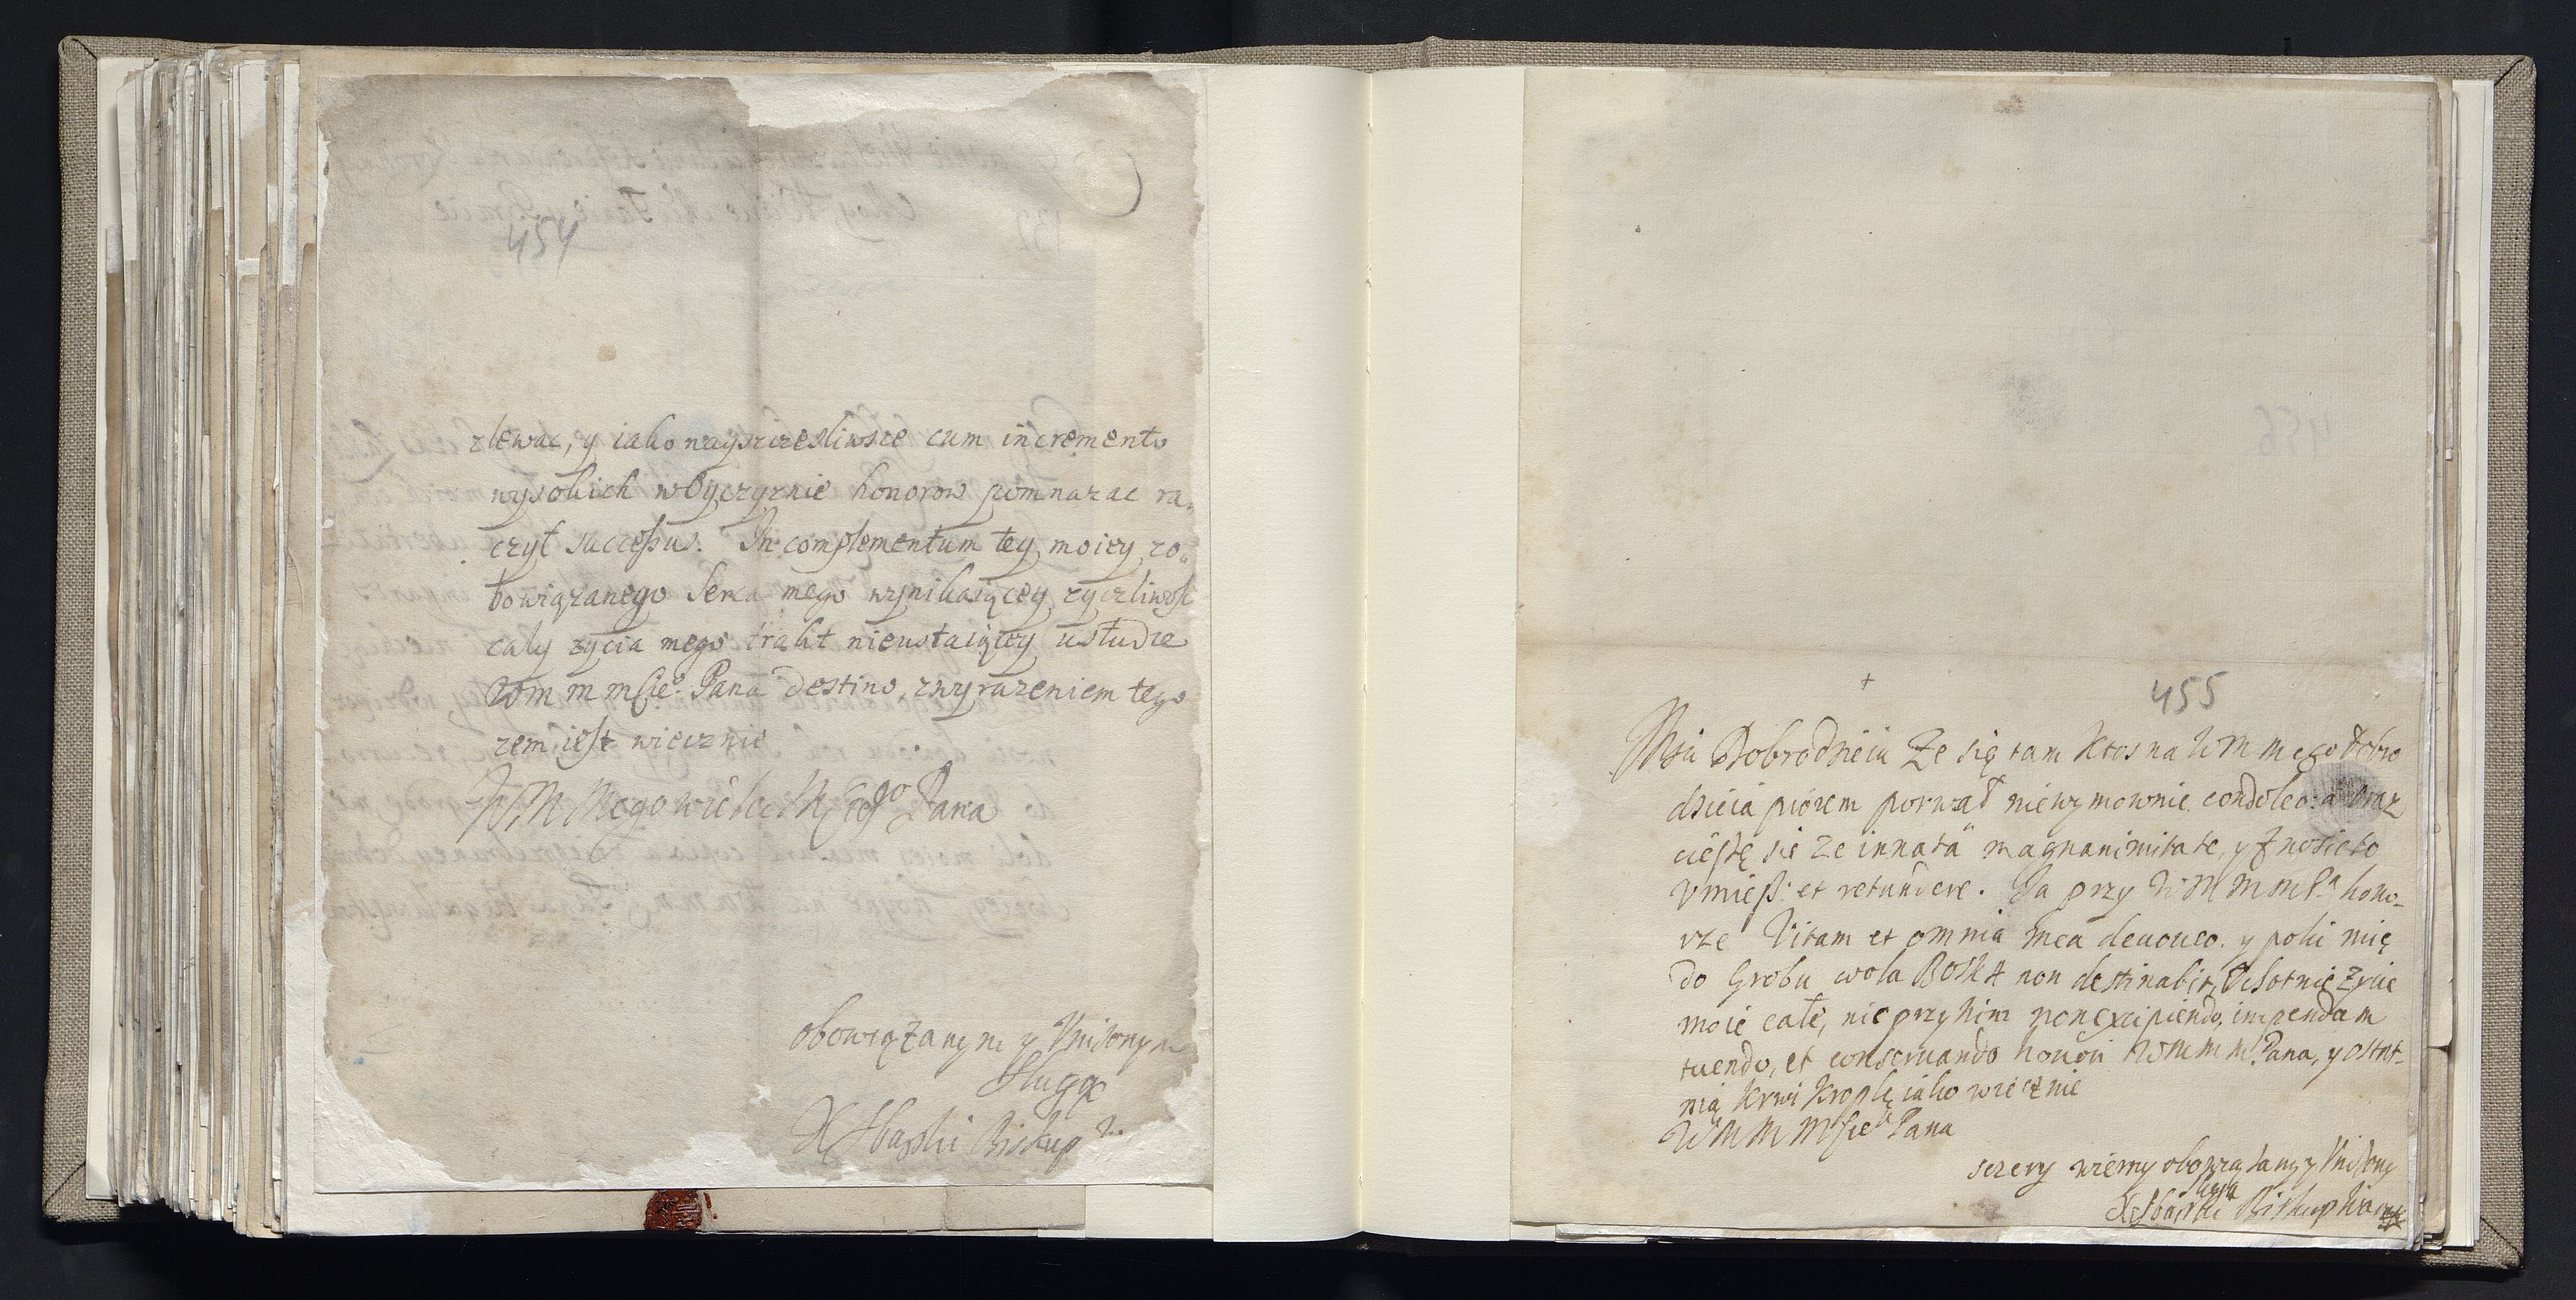 454
zlewac, y iako nayszczesliwsze cum incremento
wysokich wOyczyznie honorow pomnazac ra,
czył successus. In complementum tey moiey zo,
bowiązanego Serca mego wynikaiącey zyczliwosc
caly zycia mego trakt nieustaiącey usłudze
Wm m mście° Pana destino, zwyrazeniem tego
zem iest wiecznie
WM Mego wielce Mście°go Pana
obowiązanym y Unizonym
Sługą
X Zbąski Biskup
+
455
Msci Dobrodzieiu Ze się tam Ktos na WM mego dobro
dzieia piórem porwał niewymownie condoleo: a oraz
cieszę sie ze innata magnanimitate, y znosic to
Umiesz et retundere. Ja przy WM M m P.ª hono-
rze Vitam et omnia mea deuoueo. y poki mię
do Grobu wola BOSKA non destinabit, Ochotnie zycie
moie całe, nic przy nim non excipiendo, impendam
tuendo, et conseruando honori WM m m Pana, y ostat-
nią Krwi Kroplę iako wiecznie
WM M Mście° Pana
szczery wierny obowiązany y Unizony
Sługa
X Zbąski Biskup
456